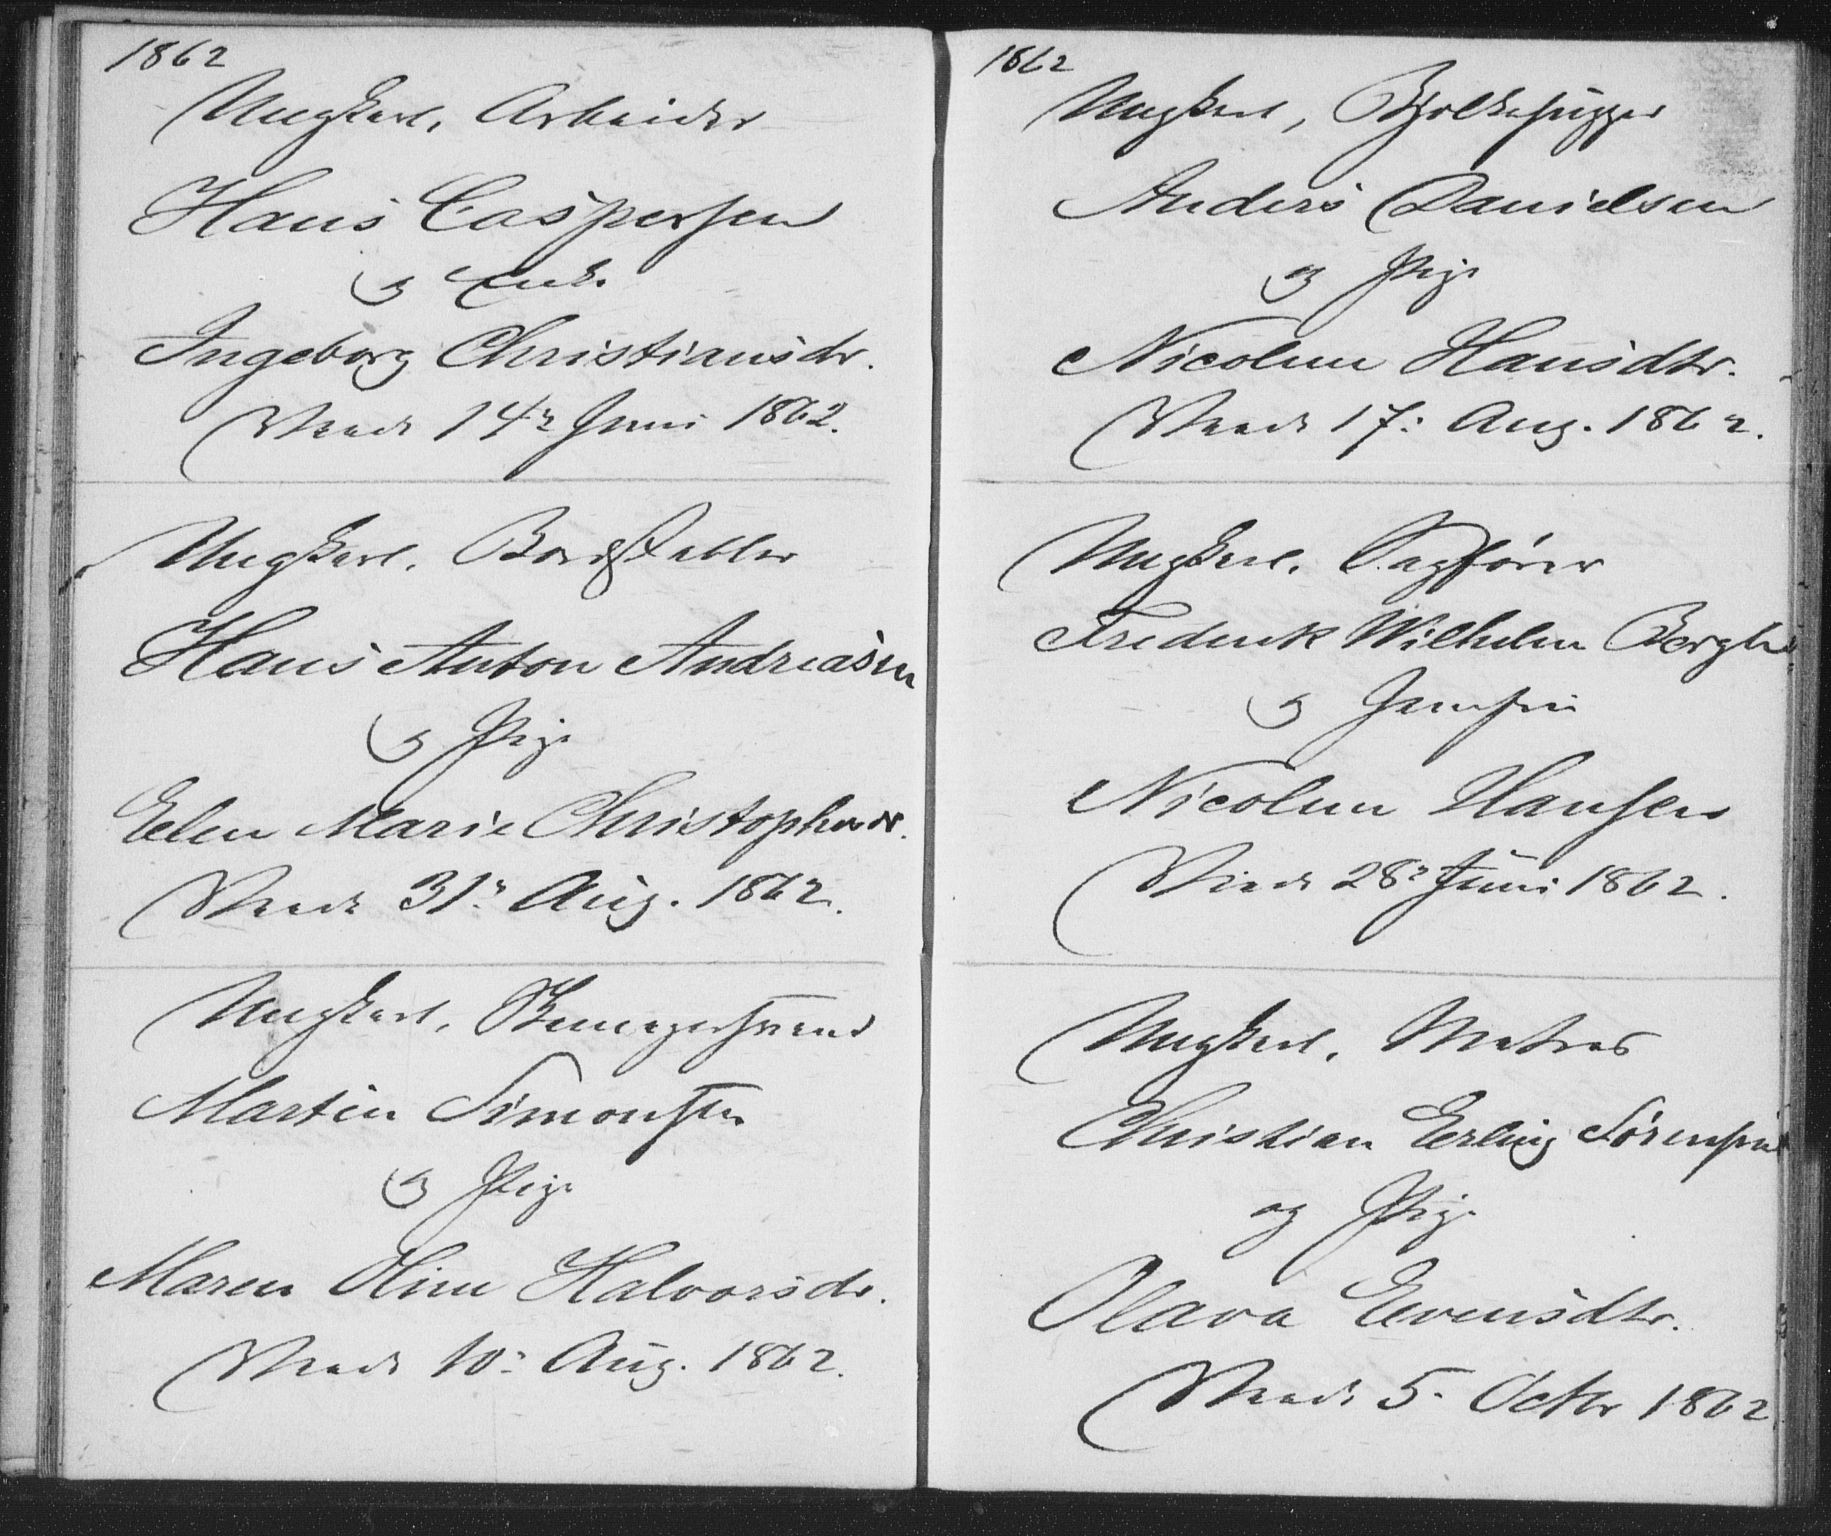 1862
Ungkarl, Arbeider
Hans Caspersen
og Enke
Ingeborg Christiansdr.
Viede 14de Juni 1862.
Ungkarl, Bordstabler
Hans Anton Andreasen
og Pige
Elen Marie Christophersdr.
Viede 31te Aug. 1862.
Ungkarl, Skomagersvend
Martin Simonsen
og Pige
Maren Oline Halvorsdr.
Viede 10: Aug. 1862.
1862
Ungkarl, Bjelkehugger
Anders Danielsen
og Pige
Nicoline Hansdtr.
Viede 17: Aug. 1862.
Ungkarl, Sagfører
Frederik Wilhelm
og Jomfru
Nicoline Hansen
Viede 28de Juni 1862.
Ungkarl, Matros
Christian Erling Sørensen
og Pige
Olava Evensdtr.
Viede 5. Octbr 1862